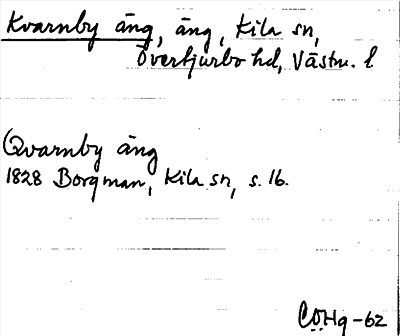 Kvarnby äng, äng, Kila sn,
Övertjurbo hd, Västm. l.
Qvarnby äng
1828 Borgman, Kila sn, s. 16.
CÖHg-62